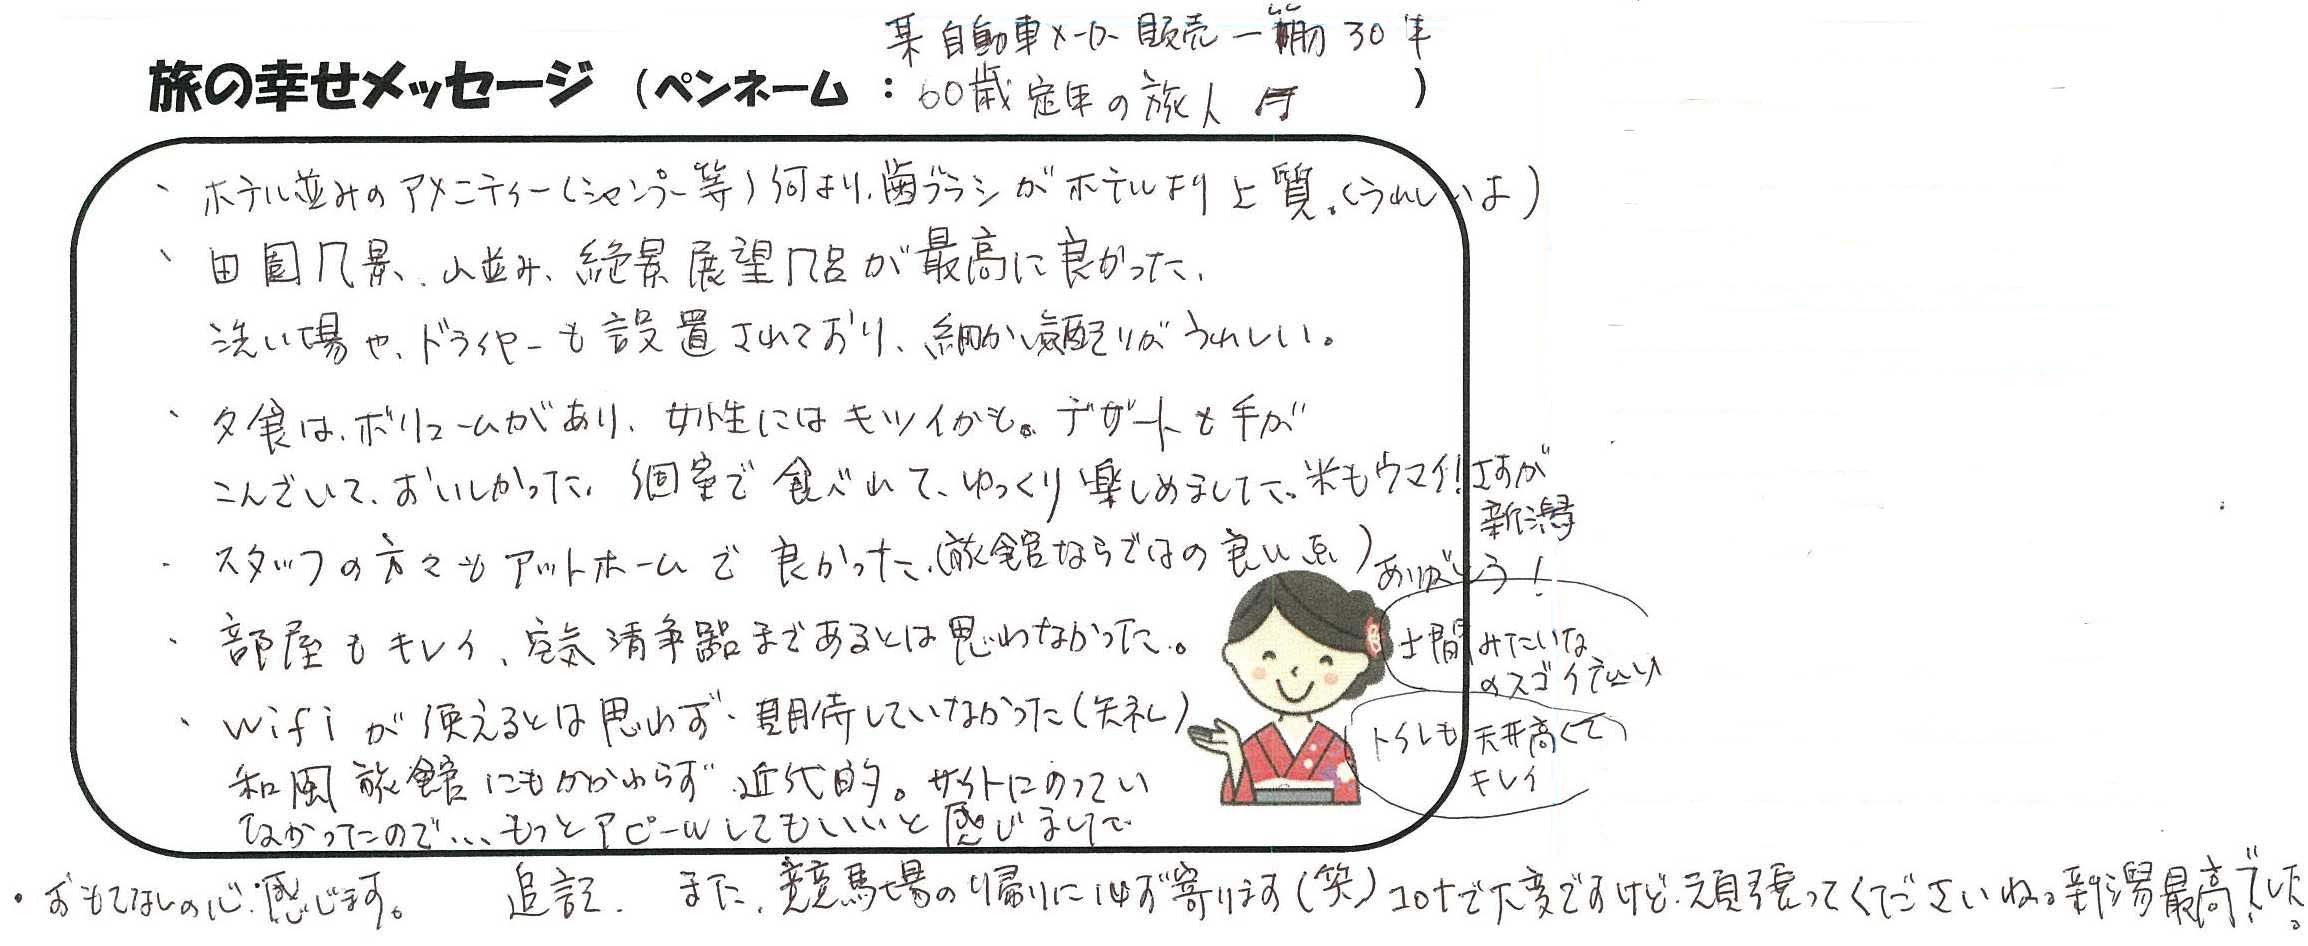 某自動車メーカー販売一筋30年
旅の幸せメッセージ（ペンネーム：60歳定年の旅人　）
、ホテル並みのアメニティー（シャンプー等）何より、歯ブラシがホテルより上質。（うれしいよ）
、田園風景、山並み、絶景展望風呂が最高に良かった、
洗い場や、ドライヤーも設置されており、細かい気配りがうれしい。
、夕食は、ボリュームがあり、女性にはキツイかも。デザートも手が
こんでいて、おいしかった、個室で食べれて、ゆっくり楽しめました。米もウマイ！さすが
新潟
・スタッフの方々もアットホームで良かった、（旅館ならではの良い点）ありがとう！
・部屋もキレイ、空気清浄器まであるとは思わなかった。
土間みたいな
のスゴイでかい
、wifiが使えるとは思わず、期待していなかった（失礼）
トイレも天井高くて
キレイ
和風旅館にもかかわらず近代的。サイトにのってい
なかったので、、、もっとアピールしてもいいと感じました
・おもてなしの心、感じます。　追記．　また、競馬場の帰りに必ず寄ります（笑）コロナで大変ですけど、頑張ってくださいね。新潟最高でした。